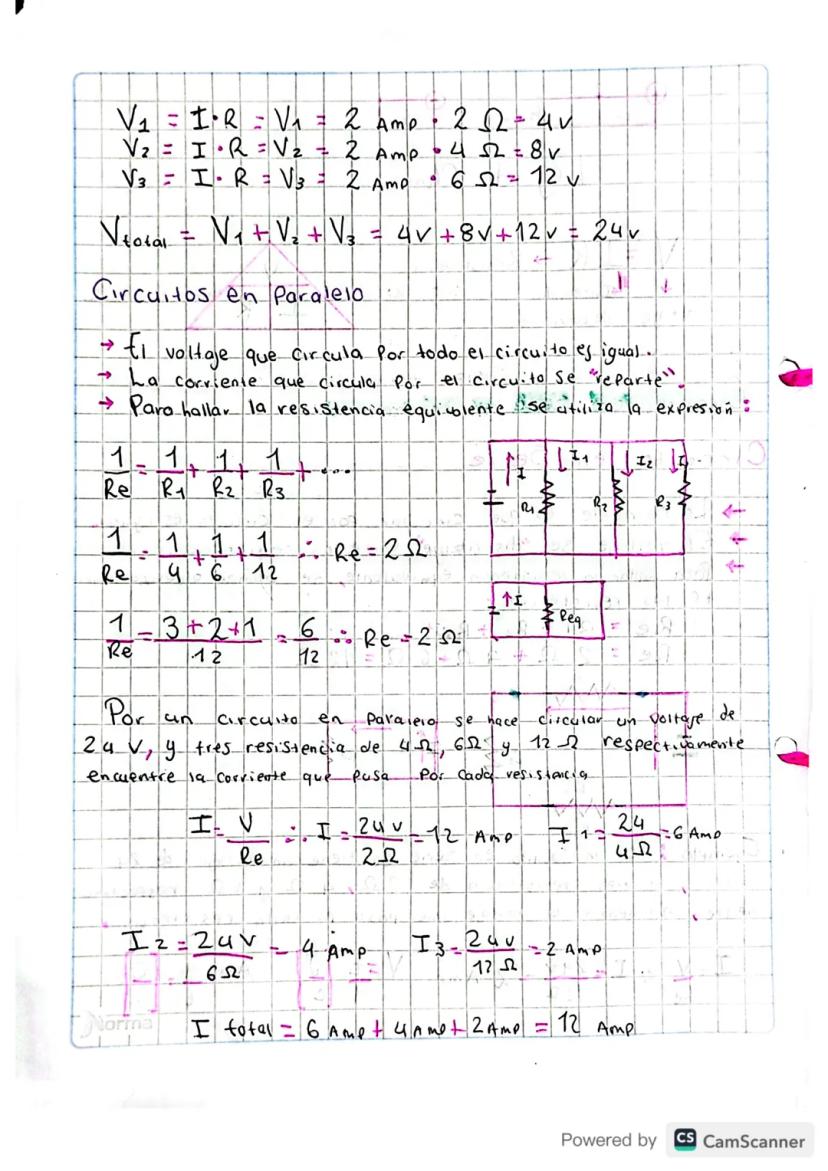 V1 = I·R = V1 = 2 Amp · 2 Ω = 4v
V2 = I·R = V2 = 2 Amp · 4 Ω = 8v
V3 = I·R = V3 = 2 Amp · 6 Ω = 12v
Vtotal = V1 + V2 + V3 = 4v + 8v + 12v = 24v
Circuitos en Paralelo
→ El voltaje que circula por todo el circuito es igual.
→ La corriente que circula por el circuito se "reparte".
→ Para hallar la resistencia equivalente se utiliza la expresión:
1/Re = 1/R1 + 1/R2 + 1/R3 + ...
I I1 I2 I
R1 R2 R3
1/Re = 1/4 + 1/6 + 1/12 ∴ Re = 2 Ω
I Req
1/Re = 3+2+1/12 = 6/12 ∴ Re = 2 Ω
Por un circuito en paralelo se hace circular un voltaje de
24 V, y tres resistencia de 4Ω, 6Ω y 12 Ω respectivamente
encuentre la corriente que pasa por cada resistencia
I = V/Re ∴ I = 24v/2Ω = 12 Amp I1 = 24/4Ω = 6 Amp
I2 = 24V/6Ω = 4 Amp I3 = 24v/12Ω = 2 Amp
Norma
I total = 6 Amp + 4 Amp + 2 Amp = 12 Amp
Powered by CS CamScanner